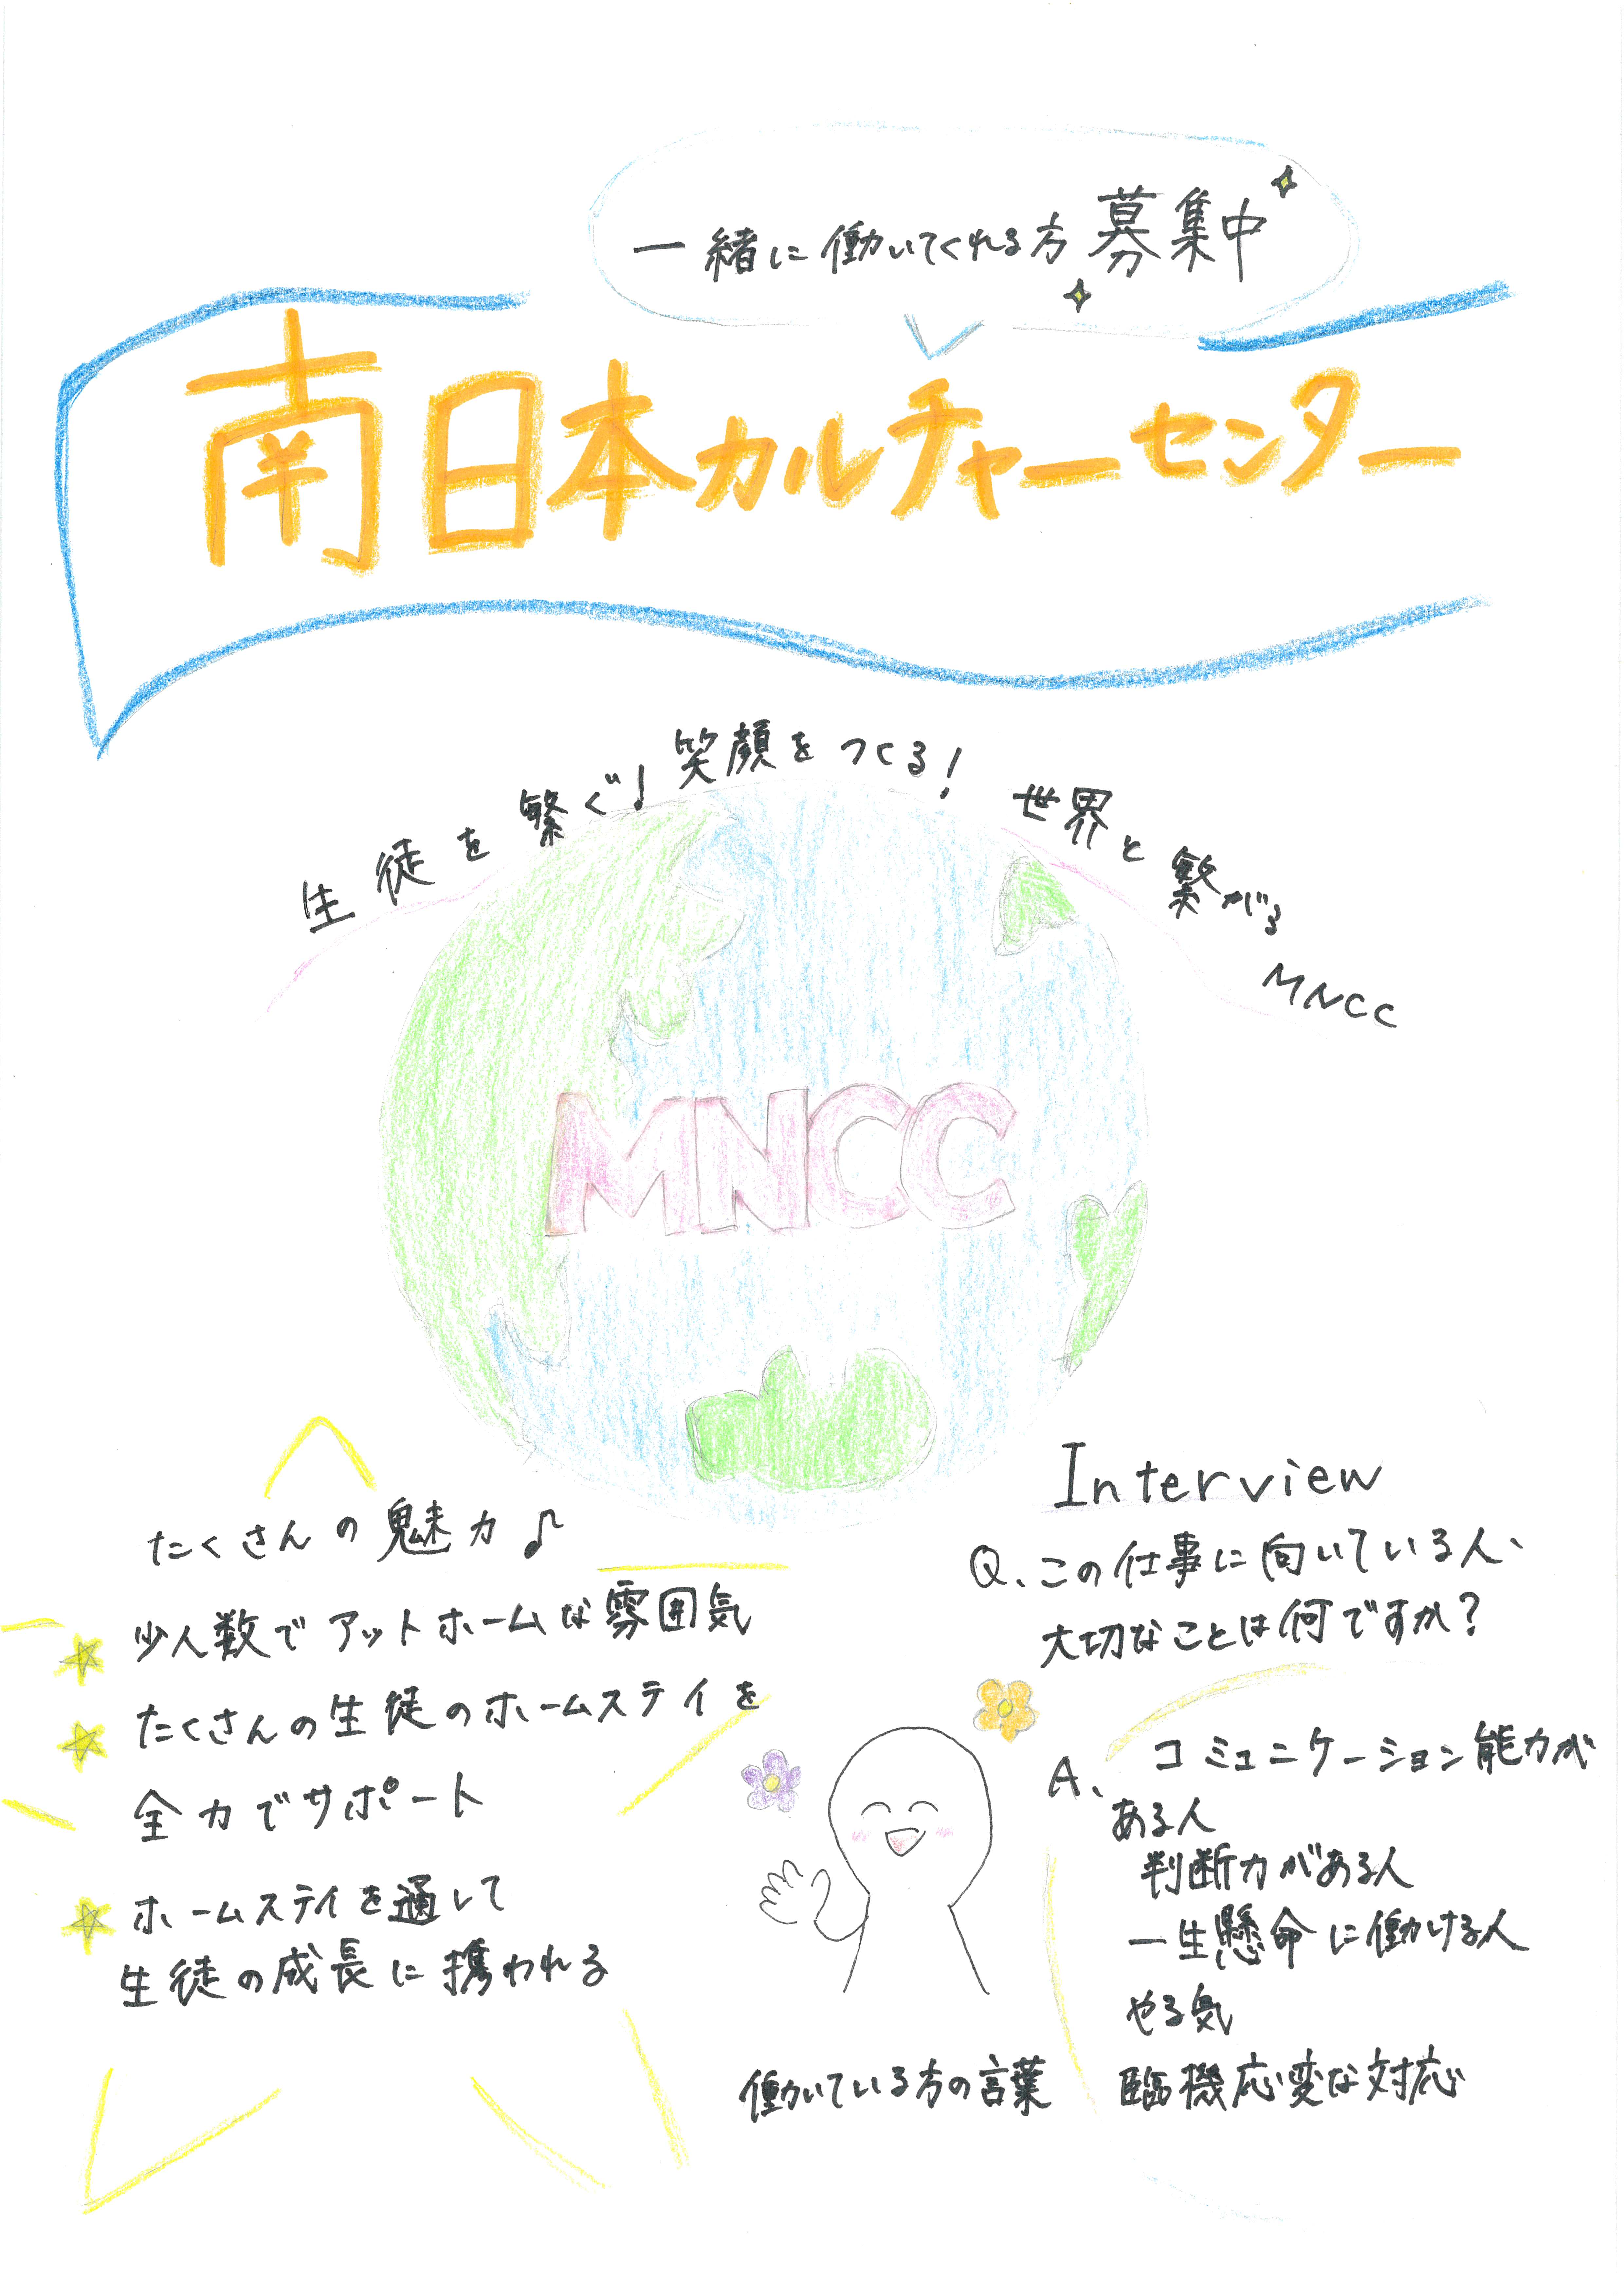 一緒に働いてくれる方募集中
南日本カルチャーセンター
生徒を繋ぐ！笑顔をつくる！世界と繋がる MNCC
MNCC
たくさんの魅力♪
少人数でアットホームな雰囲気
たくさんの生徒のホームステイを
全力でサポート
ホームステイを通して
生徒の成長に携われる
Interview
Q、この仕事に向いている人、
大切なことは何ですか？
A、コミュニケーション能力が
ある人
判断力がある人
一生懸命に働ける人
やる気
臨機応変な対応
働いている方の言葉